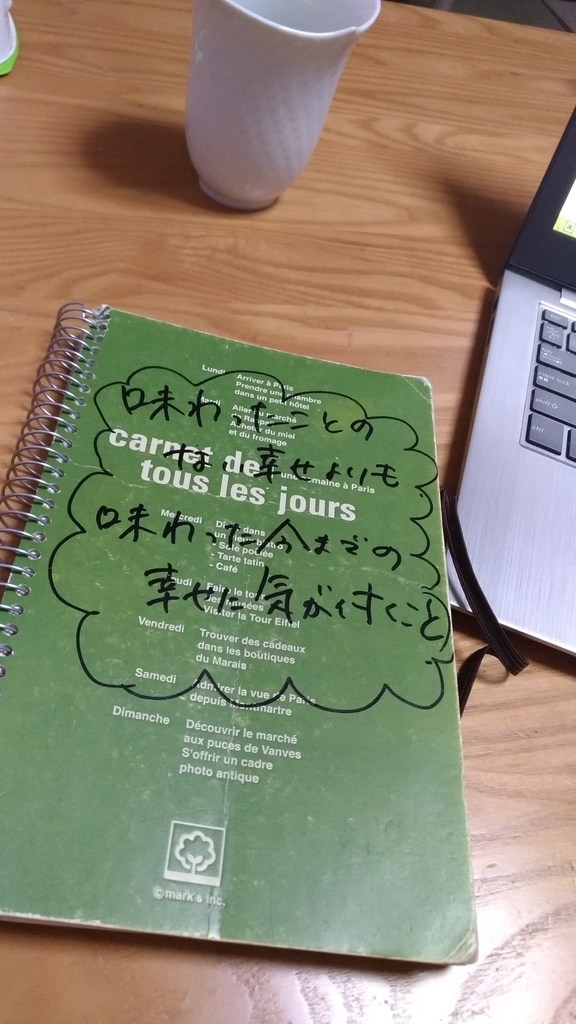 味わったことの
ない幸せよりも
味わった今までの
幸せに気が付くこと
Lundi Arriver à Paris
Prendre une chambre
dans un petit hôtel
Acheter du miel
et du fromage
carnet de
une semaine à Paris
tous les jours
Mercredi
- Tarte tatin
- Café
Visiter la Tour Eiffel
Vendredi Trouver des cadeaux
dans les boutiques
du Marais
Samedi Admirer la vue de Paris
depuis Montmartre
Dimanche Découvrir le marché
aux puces de Vanves
S'offrir un cadre
photo antique
©mark's Inc.
shift
ctrl